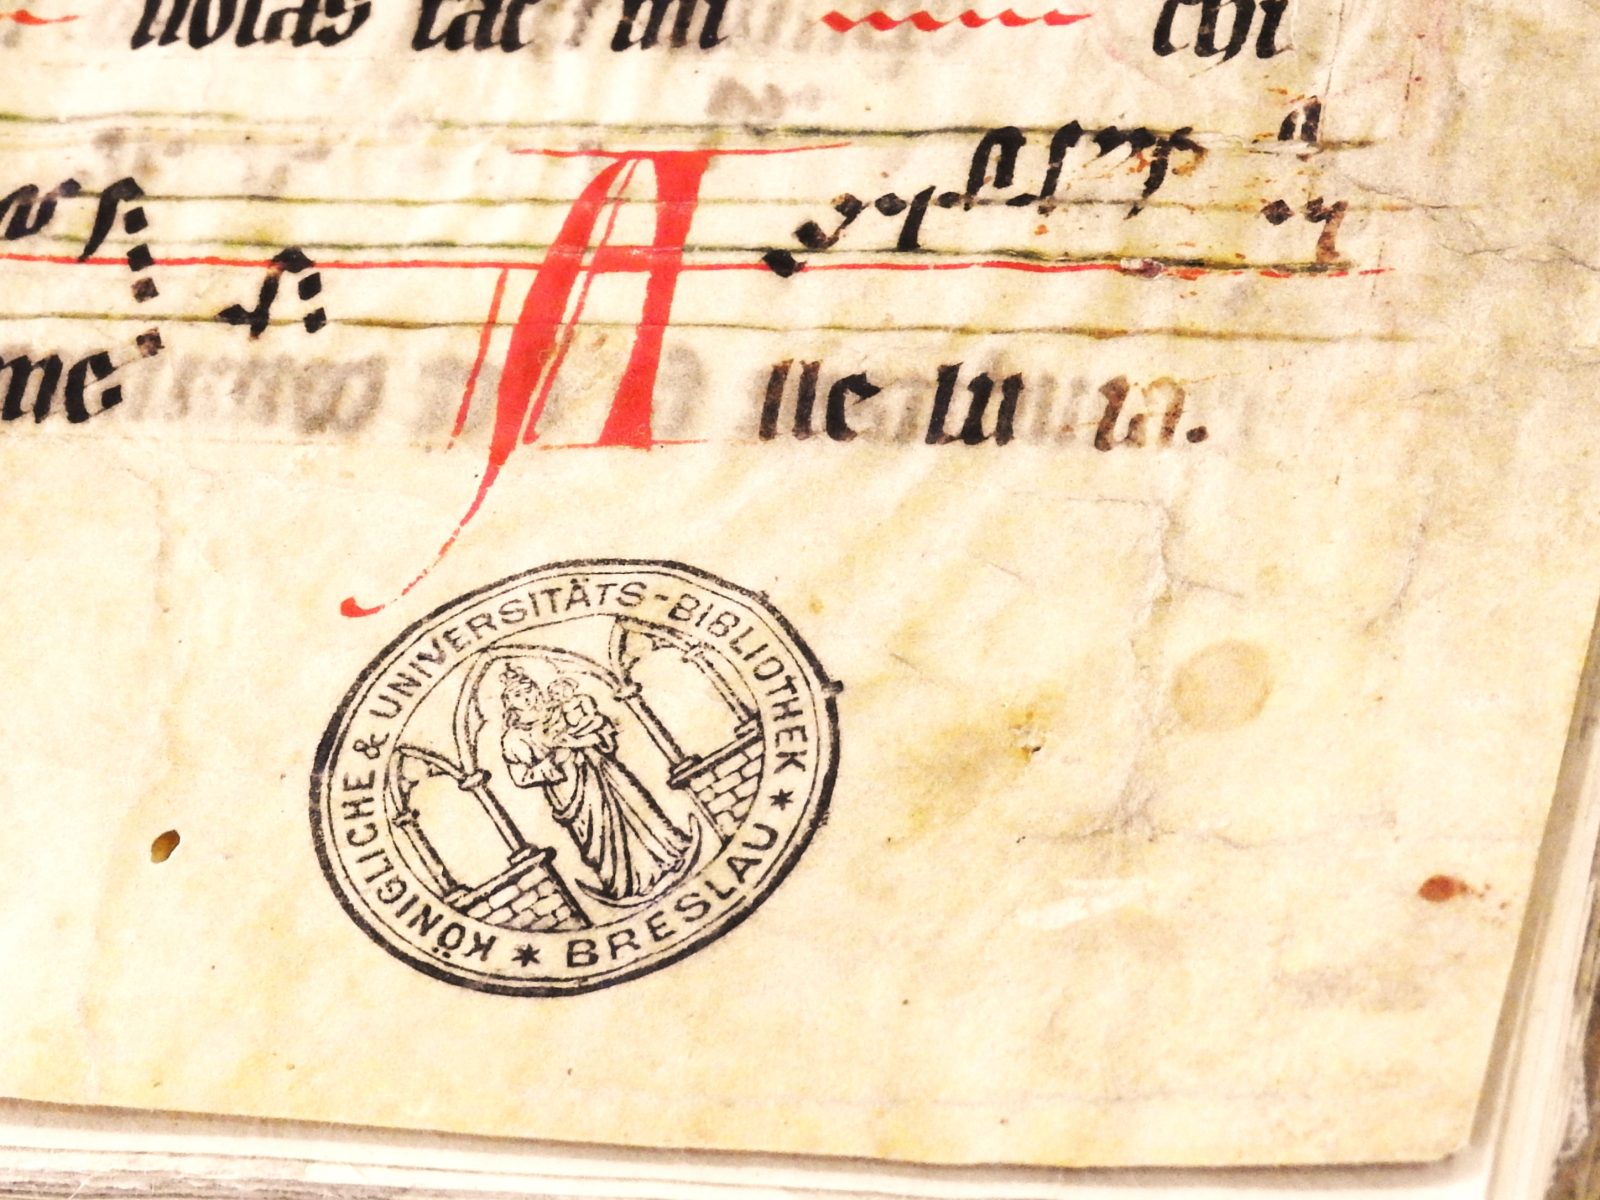 notas fac mi chi
me. Alleluia.
KÖNIGLICHE & UNIVERSITÄTS-BIBLIOTHEK * BRESLAU *